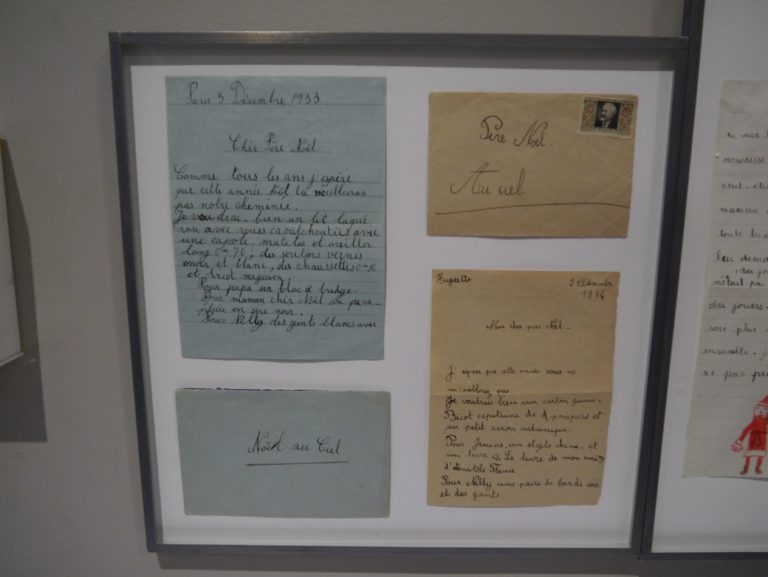 Paris 5 Décembre 1933
Cher Père Noël
Comme tous les ans j'espère
que cette année tu n'oublieras
pas notre cheminée.
Je voudrai bien un lit laqué
rose avec roues caoutchoutées avec
une capote, matelas et oreiller
long 0m70, des souliers vernis
noir et blanc, des chaussettes
et tricot magicien.
Pour papa un bloc d bridge
Pour maman cher Noël un para-
pluie en soie noir.
Pour Nelly des gants blancs avec
Noël au Ciel
Père Noël
Au ciel
Huguette
21 Décembre
1934
Mon cher père Noël.
J'espère que cette année vous ne
m'oublierez pas.
Je voudrais bien un carton jaune,
Bicot capitaine de pompiers et
un petit avion mécanique.
Pour Janine, un stylo chiné, et
un livre « Le livre de mon ami »
d'Anatole France
Pour Nelly une paire de bas de soie
et des gants.
peut-être
maman
toute les
des jouers.
sera plus
ensemble.
ne pas